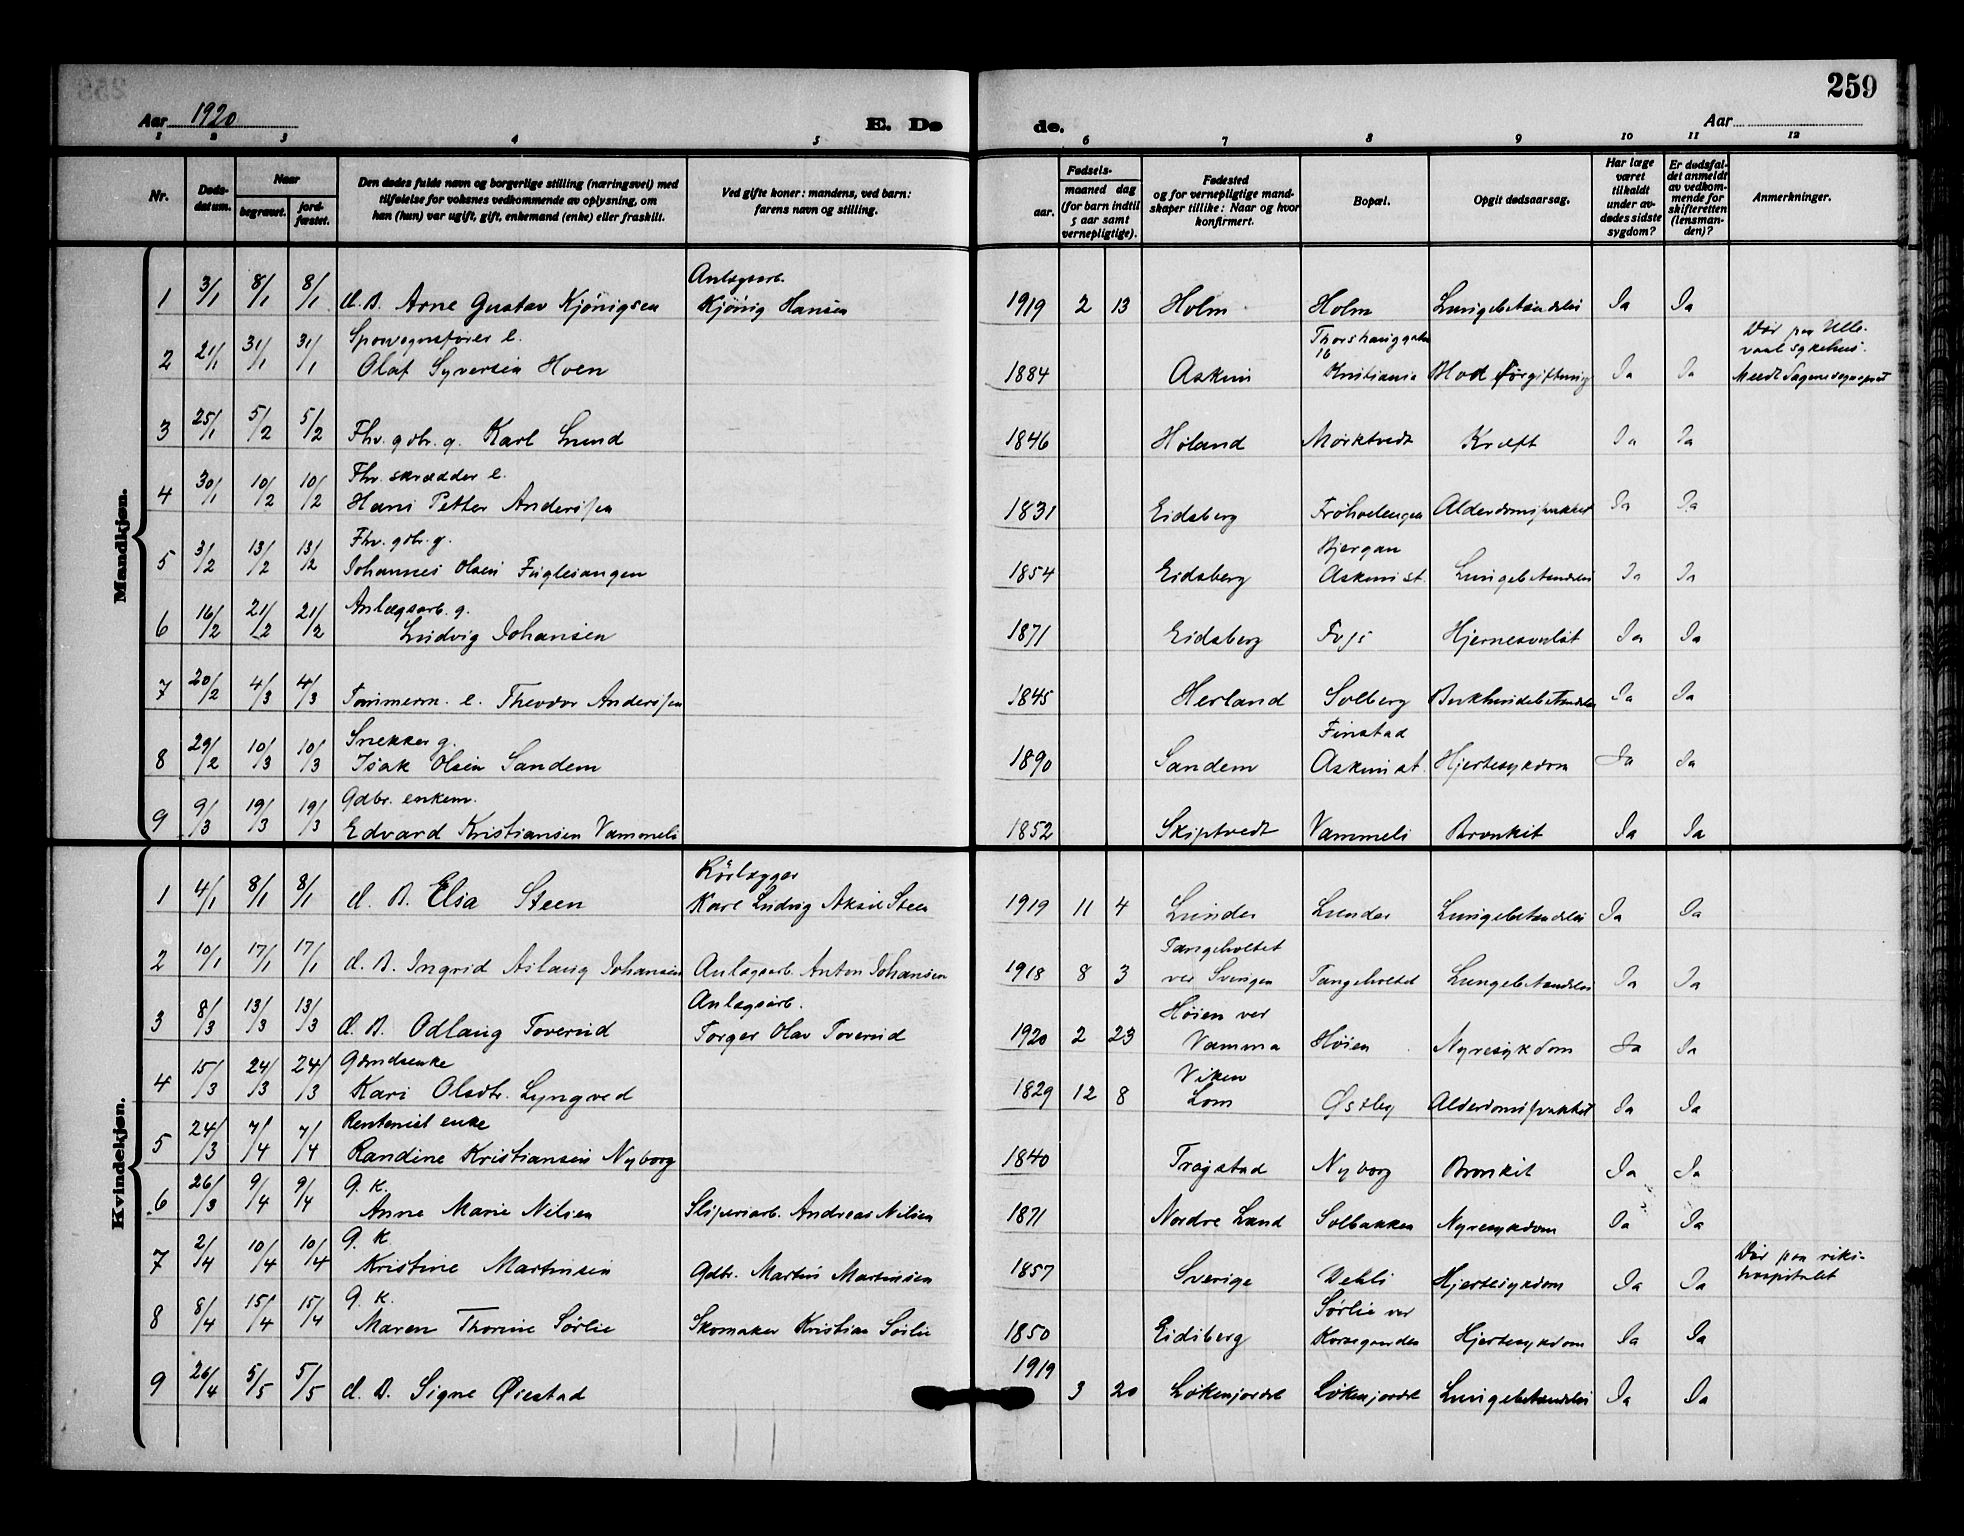 259
Aar 1920
E. Dø
de.
Aar
1 2 3 4 5 6 7 8 9 10 11 12
Nr.
Døds-
datum.
Naar
begravet.
jord-
fæstet.
Den dødes fulde navn og borgerlige stilling (næringsvei) med
tilføielse for voksnes vedkommende av oplysning, om
han (hun) var ugift, gift, enkemand (enke) eller fraskilt.
Ved gifte koner: mandens, ved barn:
farens navn og stilling.
Fødsels-
aar.
maaned dag
(for barn indtil
5 aar samt
vernepligtige).
Fødested
og for vernepligtige mand-
skaper tillike: Naar og hvor
konfirmert.
Bopæl.
Opgit dødsaarsag.
Har læge
været
tilkaldt
under av-
dødes sidste
sygdom?
Er dødsfal-
det anmeldt
av vedkom-
mende for
skifteretten
(lensman-
den)?
Anmerkninger.
Mandkjøn.
Anlægsarb.
1 3/1 8/1 8/1 d. B. Arne Gustav Kjönigsen Kjönig Hansen 1919 2 13 Holm Holm Lungebetændelse Ja Ja
2 21/1 31/1 31/1 Sporvognsfører e.
Olaf Syversen Hoen 1884 Askim Thorshauggaten
16
Kristiania Blodforgiftning Ja Ja Död paa Ulle-
vaal sykehus.
Meldt Sagene sogneprest
3 25/1 5/2 5/2 Fhv. gdbr. g. Karl Lund 1846 Høland Mörktvedt Kræft Ja Ja
4 30/1 10/2 10/2 Fhv. skrædder e.
Hans Petter Anderssen 1831 Eidsberg Alderdomssvakhet Ja Ja
5 3/2 13/2 13/2 Fhv. gdbr. g.
Johannes Olsen Fuglesangen 1854 Eidsberg Bjergan
Askim st. Lungebetændelse Ja Ja
6 16/2 21/2 21/2 Anlægsarb. g.
Ludvig Johansen 1871 Eidsberg Hjerneslag Ja Ja
7 20/2 4/3 4/3 Tømmerm. e. Theodor Anderssen 1845 Herland Solberg Ja Ja
8 29/2 10/3 10/3 Snekker g.
Isak Olsen Sandem 1890 Sandem Finstad
Askim st. Hjertesykdom Ja Ja
9 9/3 19/3 19/3 Gdbr. enkem.
Edvard Kristiansen Vammeli 1852 Skiptvedt Vammeli Bronkit Ja Ja
Kvindekjøn.
Rörlægger
1 4/1 8/1 8/1 d. B. Elsa Steen Karl Ludvig Aksel Steen 1919 11 4 Lunder Lunder Lungebetændelse Ja Ja
2 10/1 17/1 17/1 d. B. Ingrid Aslaug Johansen Anlægsarb. Anton Johansen 1918 8 3 Tangeholtet
ved Svingen Tangeholtet Lungebetændelse Ja Ja
Anlægsarb.
3 8/3 13/3 13/3 d. B. Odlaug Toverud Torger Olav Toverud 1920 2 23 Høien ved
Vamma Høien Nyresykdom Ja Ja
4 15/3 24/3 24/3 Gdmdsenke
Kari Olsdtr. Lyngved 1829 12 8 Viken
Lom Østby Alderdomssvakhet Ja Ja
5 24/3 7/4 7/4 Rentenist enke
Randine Kristiansen Nyborg 1840 Trøgstad Nyborg Bronkit Ja Ja
6 26/3 9/4 9/4 G. k.
Anne Marie Nilsen Sliperiarb. Andreas Nilsen 1871 Nordre Land Solbakken Nyresykdom Ja Ja
7 2/4 10/4 10/4 G. k.
Kristine Martinsen Gdbr. Martin Martinsen 1857 Sverige Dehli Hjertesykdom Ja Ja Död paa riks-
hospitalet
8 8/4 15/4 15/4 G. k.
Maren Thorine Sørlie Skomaker Kristian Sørlie 1850 Eidsberg Sørlie ved
Korsegaarden Hjertesykdom Ja Ja
9 26/4 5/5 5/5 d. B. Signe Øiestad 1919 3 20 Løkenjordet Løkenjordet Lungebetændelse Ja Ja